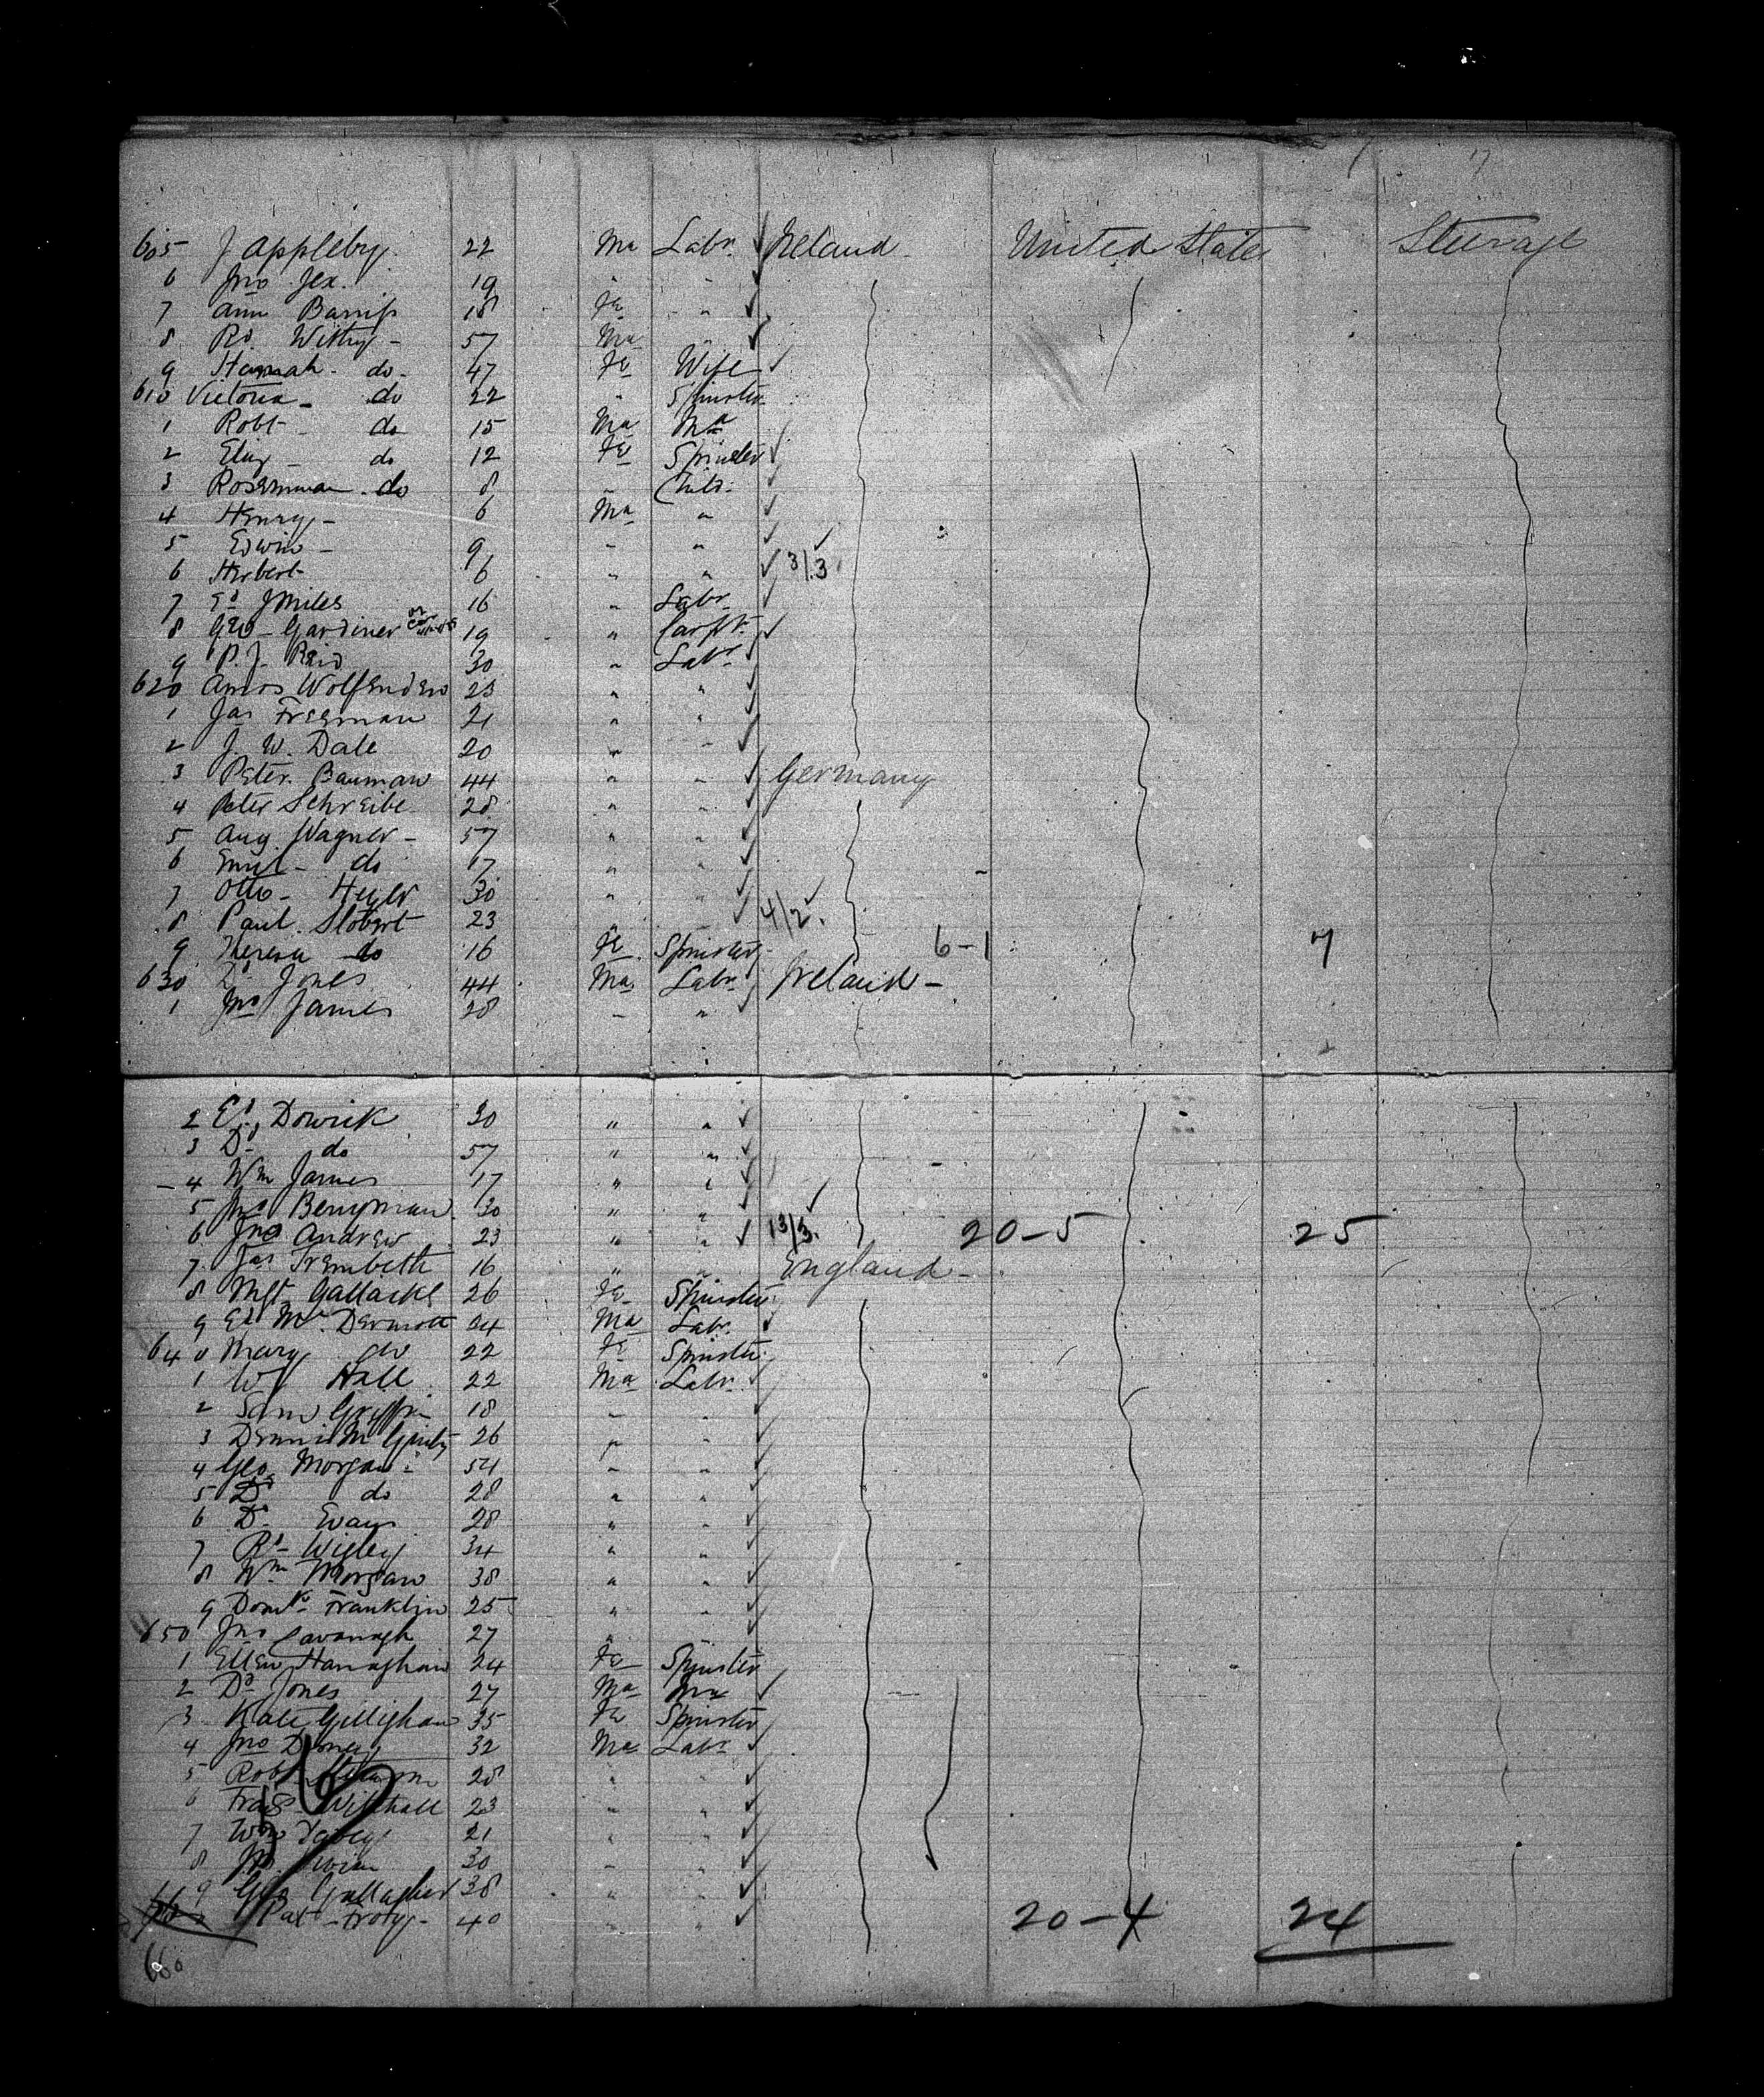 605 J Appleby 22 Ma Labr. Ireland United States Steerage
6 Jno Jex. 19 " "
7 Ann 18 Fe "
8 Rd. Withy - 57 Ma "
9 Hannah - do - 47 Fe Wife
610 Victoria - do 22 " Spinster
1 Robt - do 15 Ma Ma
2 Eliz - do 12 Fe Spinster
3 do 8 " Child
4 Henry - 6 Ma "
5 Edwin - 9 " "
6 Herbert - 6 " " 3/3
7 Ed Jmiles 16 " Labr
8 Geo - Gardiner 19 " Carptr.
9 P. J. Reid 30 " Labr
620 Amos Wolfenden 23 " "
1 Jas Freeman 21 " "
2 J. W. Dale 20 " "
3 Peter. Bauman 44 " " Germany
4 Peter Schreibe 28 " "
5 Aug Wagner - 57 " "
6 Emil - do 17 " "
7 Otto - 30 " "
8 Paul. Slobert 23 " " 4/2.
9 Theresa do 16 Fe Spinster 6-1 7
630 Jones 44 Ma Labr Ireland -
1 Jno James 28 - "
2 Ed. Dowrick 30 " "
3 Dd - do 57 " "
4 Wm James 17 " "
5 Jno Berryman 30 " "
6 Jno Andrew 23 " " 13/3. 20-5 25
7 Jas Trembeth 16 " " England -
8 Mgt 26 Fe Spinster
9 Ed McDermott 24 Ma Labr.
640 Mary do 22 Fe Spinster
1 Hall 22 Ma Labr.
2 Sam Griffin 18 - "
3 Dennis 26 " "
4 Geo. Morgan - 54 - "
5 Dd do 28 " "
6 Dd - Evans 28 " "
7 Rd - Wigley 34 " "
8 Wm Morgan 38 " "
9 Franklin 25 " "
650 Jno Cavanagh 27 " "
1 Ellen 24 Fe Spinster
2 Dd Jones 27 Ma Ma
3 Kate 35 Fe Spinster
4 Jno 32 Ma Labr
5 Robt 28 " "
6 23 " "
7 Wm 21 " "
8 30 - "
9 Geo Gallagher 38 " "
Pat - 40 " " 20-4 24
660